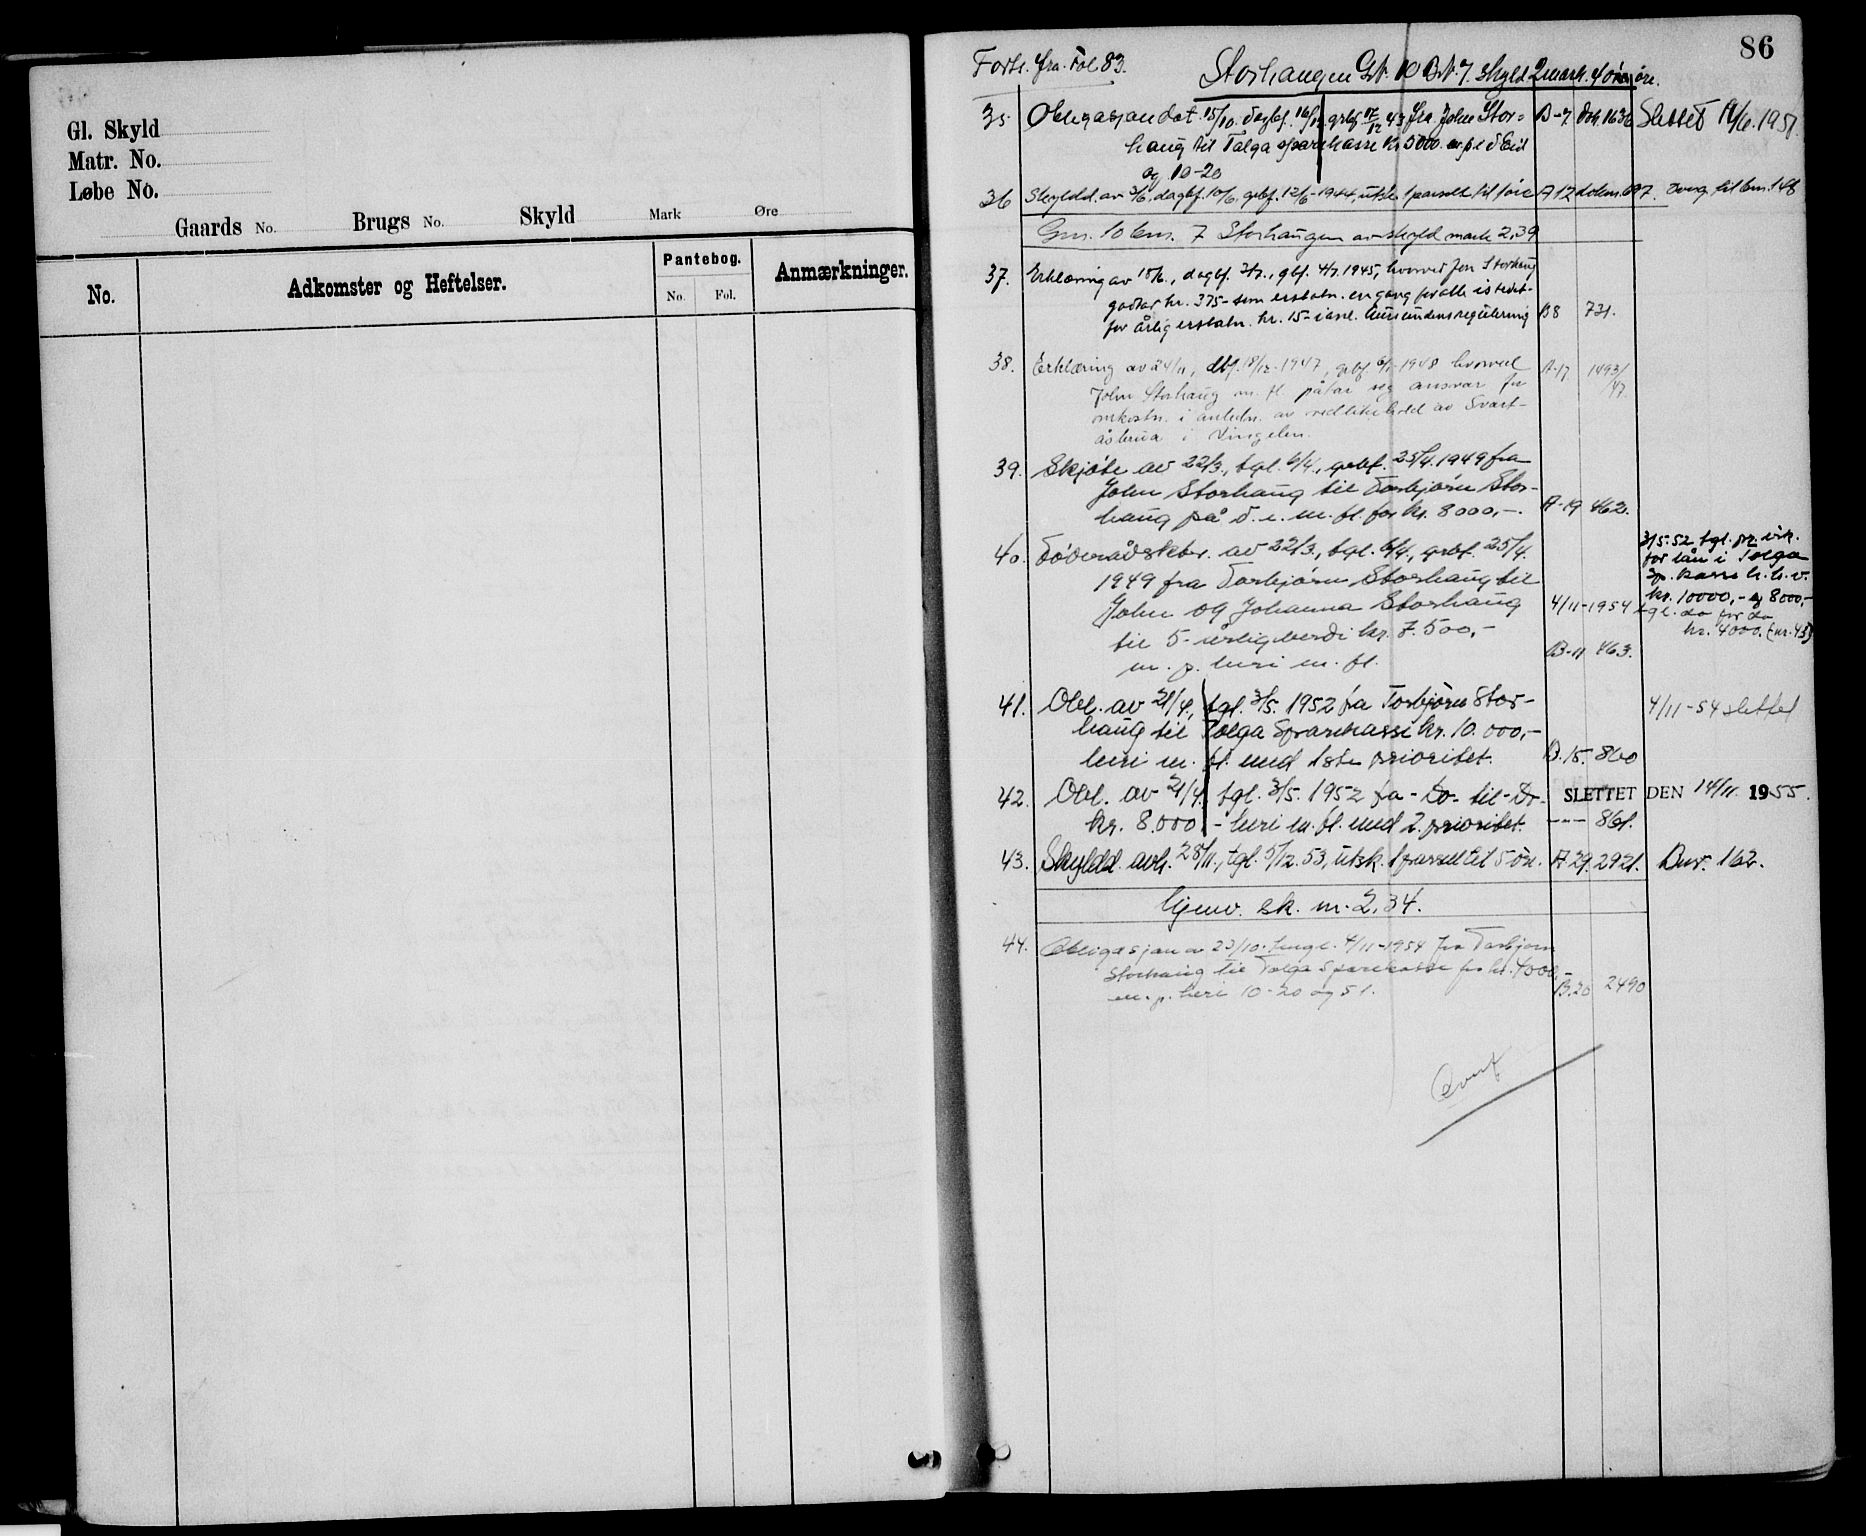 Gl. Skyld
Matr. No.
Løbe No.
Gaards No. Brugs No. Skyld Mark Øre
No. Adkomster og Heftelser. Pantebog. Anmærkninger.
No. Fol.
86
Forts. fra Fol 83.
Storhaugen Gr. 10 Br. 7. skyld 2 mark. 40 øre.
35 Obligasjon dat. 15/10. dagbf. 16/12 grbf 17/12 43 fra John Stor= B-7 1636 Slettet 19/6. 1951.
haug til Tolga sparekasse kr 5000
og 10-20
36 Skyldd. av 3/6, dagbf. 10/6, grbf. 12/6-1944, utsk. 1 parsell til 1 øre A 12 697. bnr. 148
Gnr. 10 bnr. 7 Storhaugen av skyld mark 2,39
37. Erklæring av 15/6, dagbf. 2/7., gbf. 4/7. 1945, hvorved Jon Storhaug
godtar kr. 375- som erstatn. en gang for alle istedet-
for årlig erstatn. kr. 15- i anl. Aursundens regulering B8 731.
38. Erklæring av 24/11, dbf. 18/12-1947, grbf 6/1-1948 hvorved A-17 1493/
John Storhaug m. fl. påtar seg ansvar for 47.
omkostn. i anledn. av vedlikehold av Svart-
åsbrua i Vingelen.
39. Skjøte av 22/3., tgl. 6/4., grbf. 25/4. 1949 fra
John Storhaug til Torbjørn Stor-
haug på d. e. m. fl. for kr. 8000,-. A-19 462.
40. Föderådskntr. av 22/3., tgl. 6/4., grbf. 25/4. 3/5-52 tgl. pr. vik.
1949 fra Torbjørn Storhaug til for lån i Tolga
Sp. kasse h. h. v.
John og Johanna Storhaug kr. 10000,- og 8000,-
4/11-1954 tgl. do for do
til 5-årlig verdi kr. 7.500,- kr. 4000. (nr. 43)
m. p. heri m. fl. B-11 463.
41. Obl. av 21/4., tgl. 3/5. 1952 fra Torbjørn Stor- 4/11-54 slettet
haug til Tolga Sparekasse kr. 10.000,-
heri m. fl. med 1ste prioritet. B.15. 860
42. Obl. av 21/4. tgl. 3/5. 1952 fra - Do- til - Do- SLETTET DEN 14/11. 1955.
kr. 8.000,- heri m. fl. med 2. prioritet. --- 861.
43. Skyldd. avh. 28/11., tgl. 5/12. 53, utsk. 1 parsell til 5 øre. A 29. 2921. Bnr. 162.
Gjenv. sk. m. 2,34.
44. Obligasjon av 23/10. tingl. 4/11-1954 fra Torbjørn
Storhaug til Tolga Sparekasse for kr. 4000,-
m. p. heri 10-20 og 51. B.20 2490